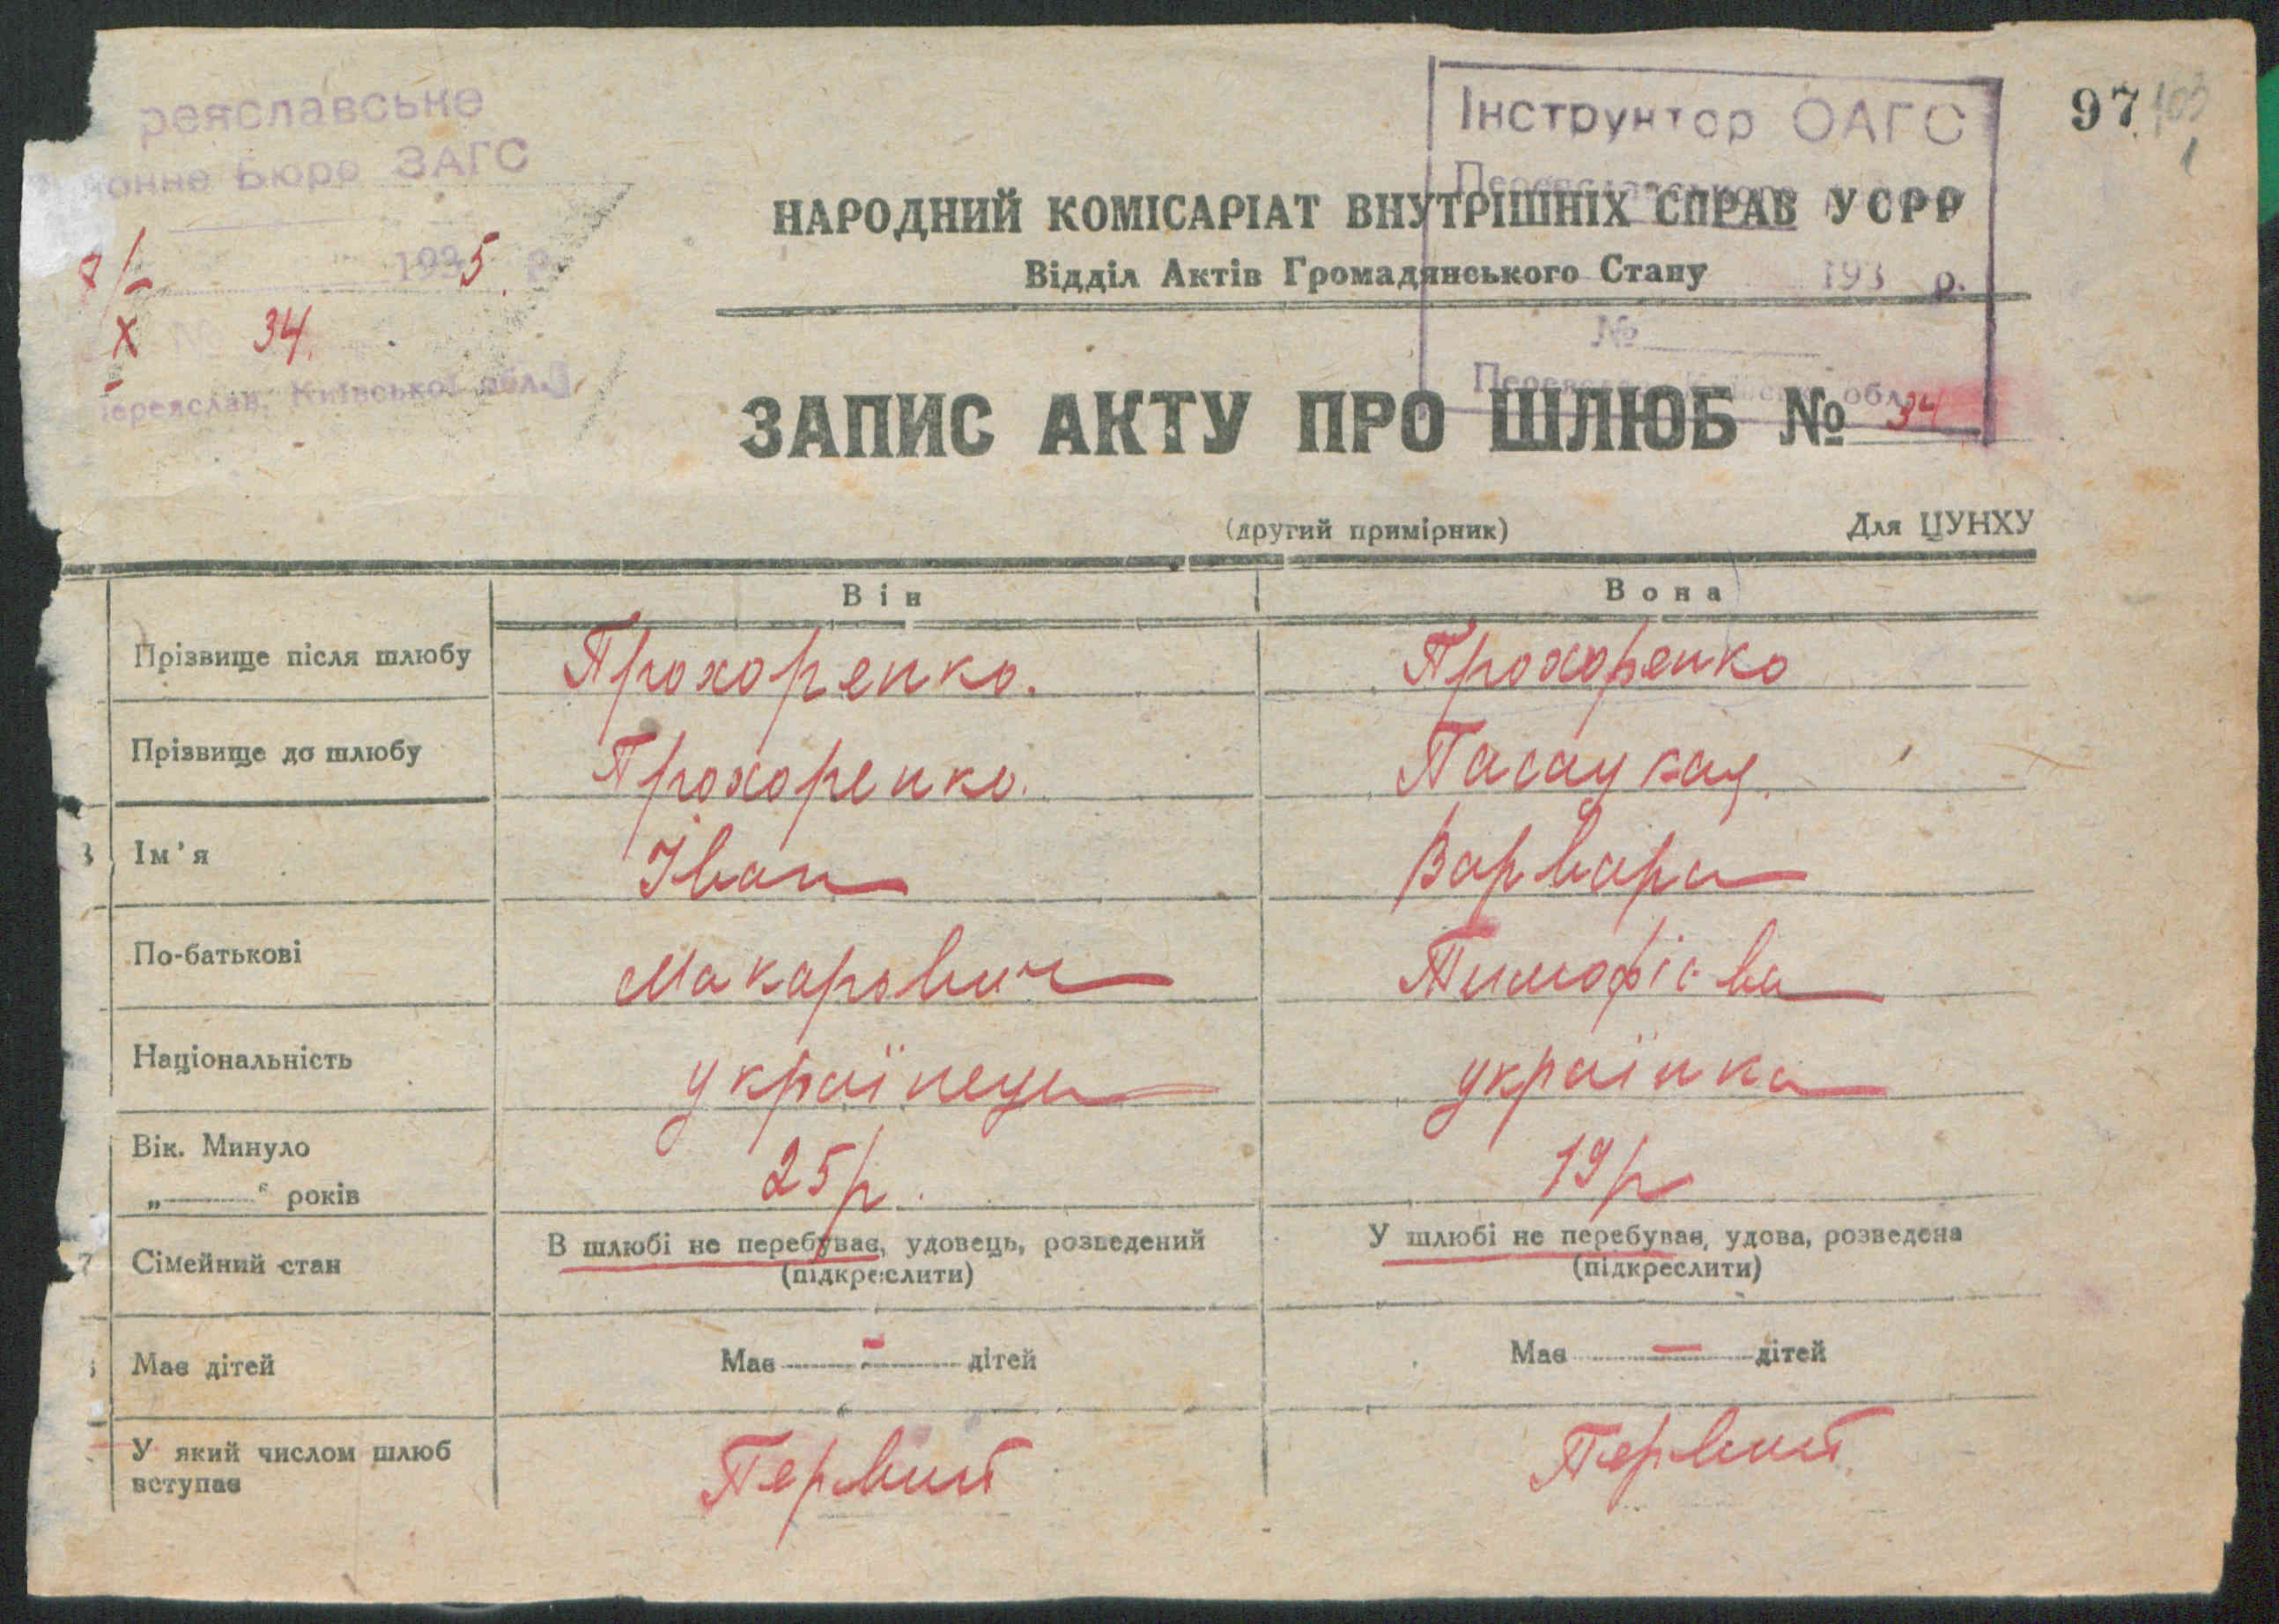 реяславське
онне Бюро ЗАГС
1935 р.
№ 34.
ереяслав, Київської обл.
Інструктор ОАГС
193 р.
№
обл.
97
НАРОДНИЙ КОМІСАРІАТ ВНУТРІШНІХ СПРАВ УСРР
Відділ Актів Громадянського Стану
ЗАПИС АКТУ ПРО ШЛЮБ № 34
(другий примірник) Для ЦУНХУ
Він Вона
Прізвище після шлюбу Прохоренко. Прохоренко
Прізвище до шлюбу Прохоренко.
3 Ім'я Іван Варвара
По-батькові Макарович Тимофієва
Національність українець українка
Вік. Минуло
„ “ років 25 р. 19 р
7 Сімейний стан В шлюбі не перебуває, удовець, розведений У шлюбі не перебуває, удова, розведена
(підкреслити) (підкреслити)
Має дітей Має - дітей Має — дітей
У який числом шлюб
вступає Первий Первий